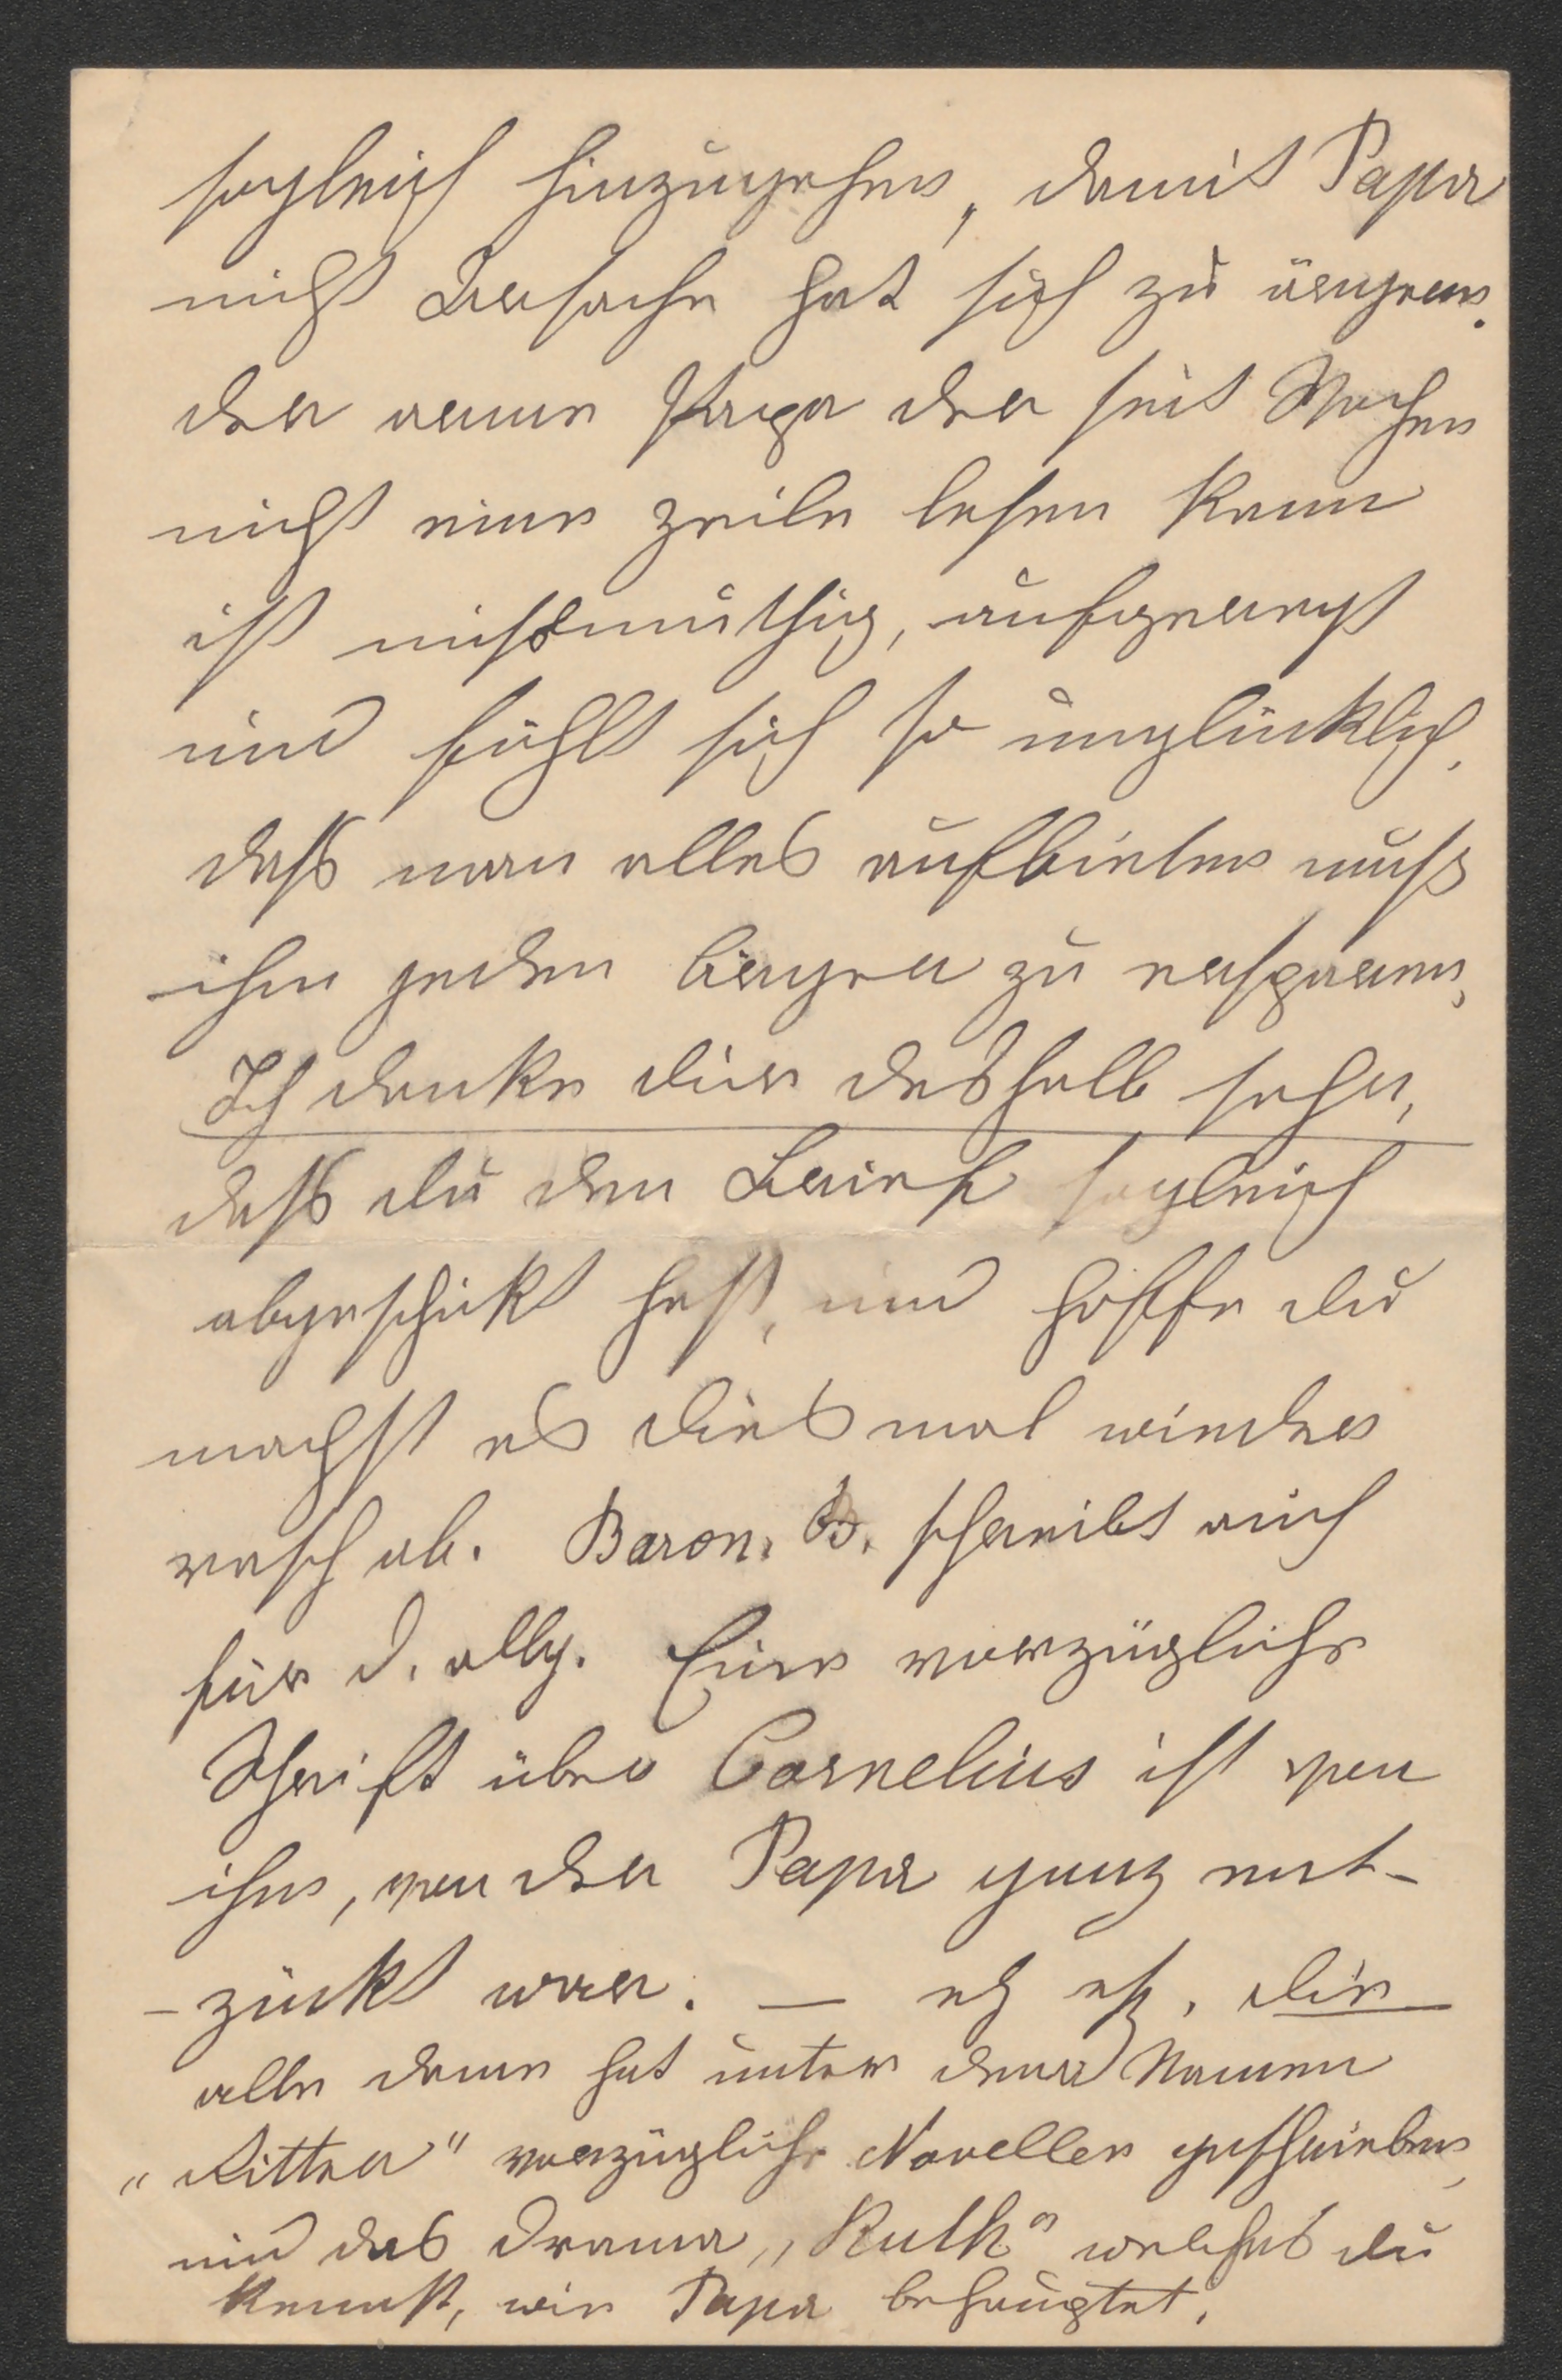 sogleich hinzugehen, damit Papa
nicht Ursache hat sich zu ärgern.
der arme Papa der seit Wochen
nicht eine Zeile lesen kann
ist missmuthig, aufgeregt
und fühlt sich so unglücklich,
dass man alles aufbieten muss
ihm jeden Ärger zu ersparen,
Ich danke dir deshalb sehr,
dass du den Brief sogleich
abgeschickt hast, und hoffe du
machst es diesmal wieder
rasch ab. Baron. B. schreibt auch
für d. allg. Eine vorzügliche
Schrift über Cornelius ist von
ihm, von der Papa ganz ent-
-zückt war. — die
alte Dame hat unter dem Namen
"Ritter" vorzügliche Novellen geschrieben,
und das Drama, „Ruth" welches du
kennst, wie Papa behauptet.